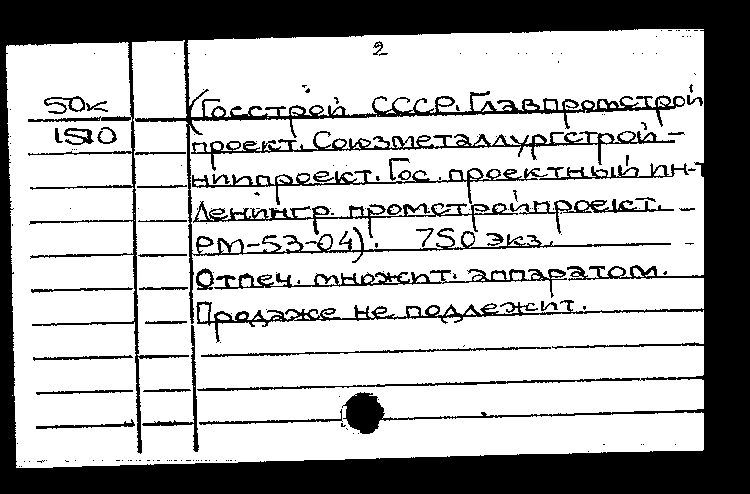 2
50к
1510
(Госстрой СССР. Главпромстрой
проект. Союзметаллургстрой-
ниипроект. Гос. проектный ин-т
Ленингр. промстройпроект.
РМ-53-04). 750 экз.
Отпеч. множит. аппаратом.
Продаже не подлежит.